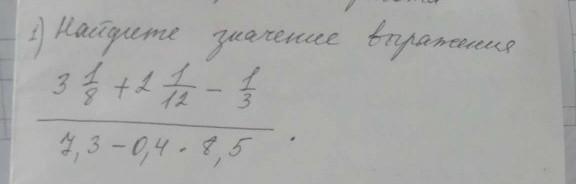 1) Найдите значение выражения
3 1/8 + 2 1/12 - 1/3
7,3 - 0,4 · 8,5 .